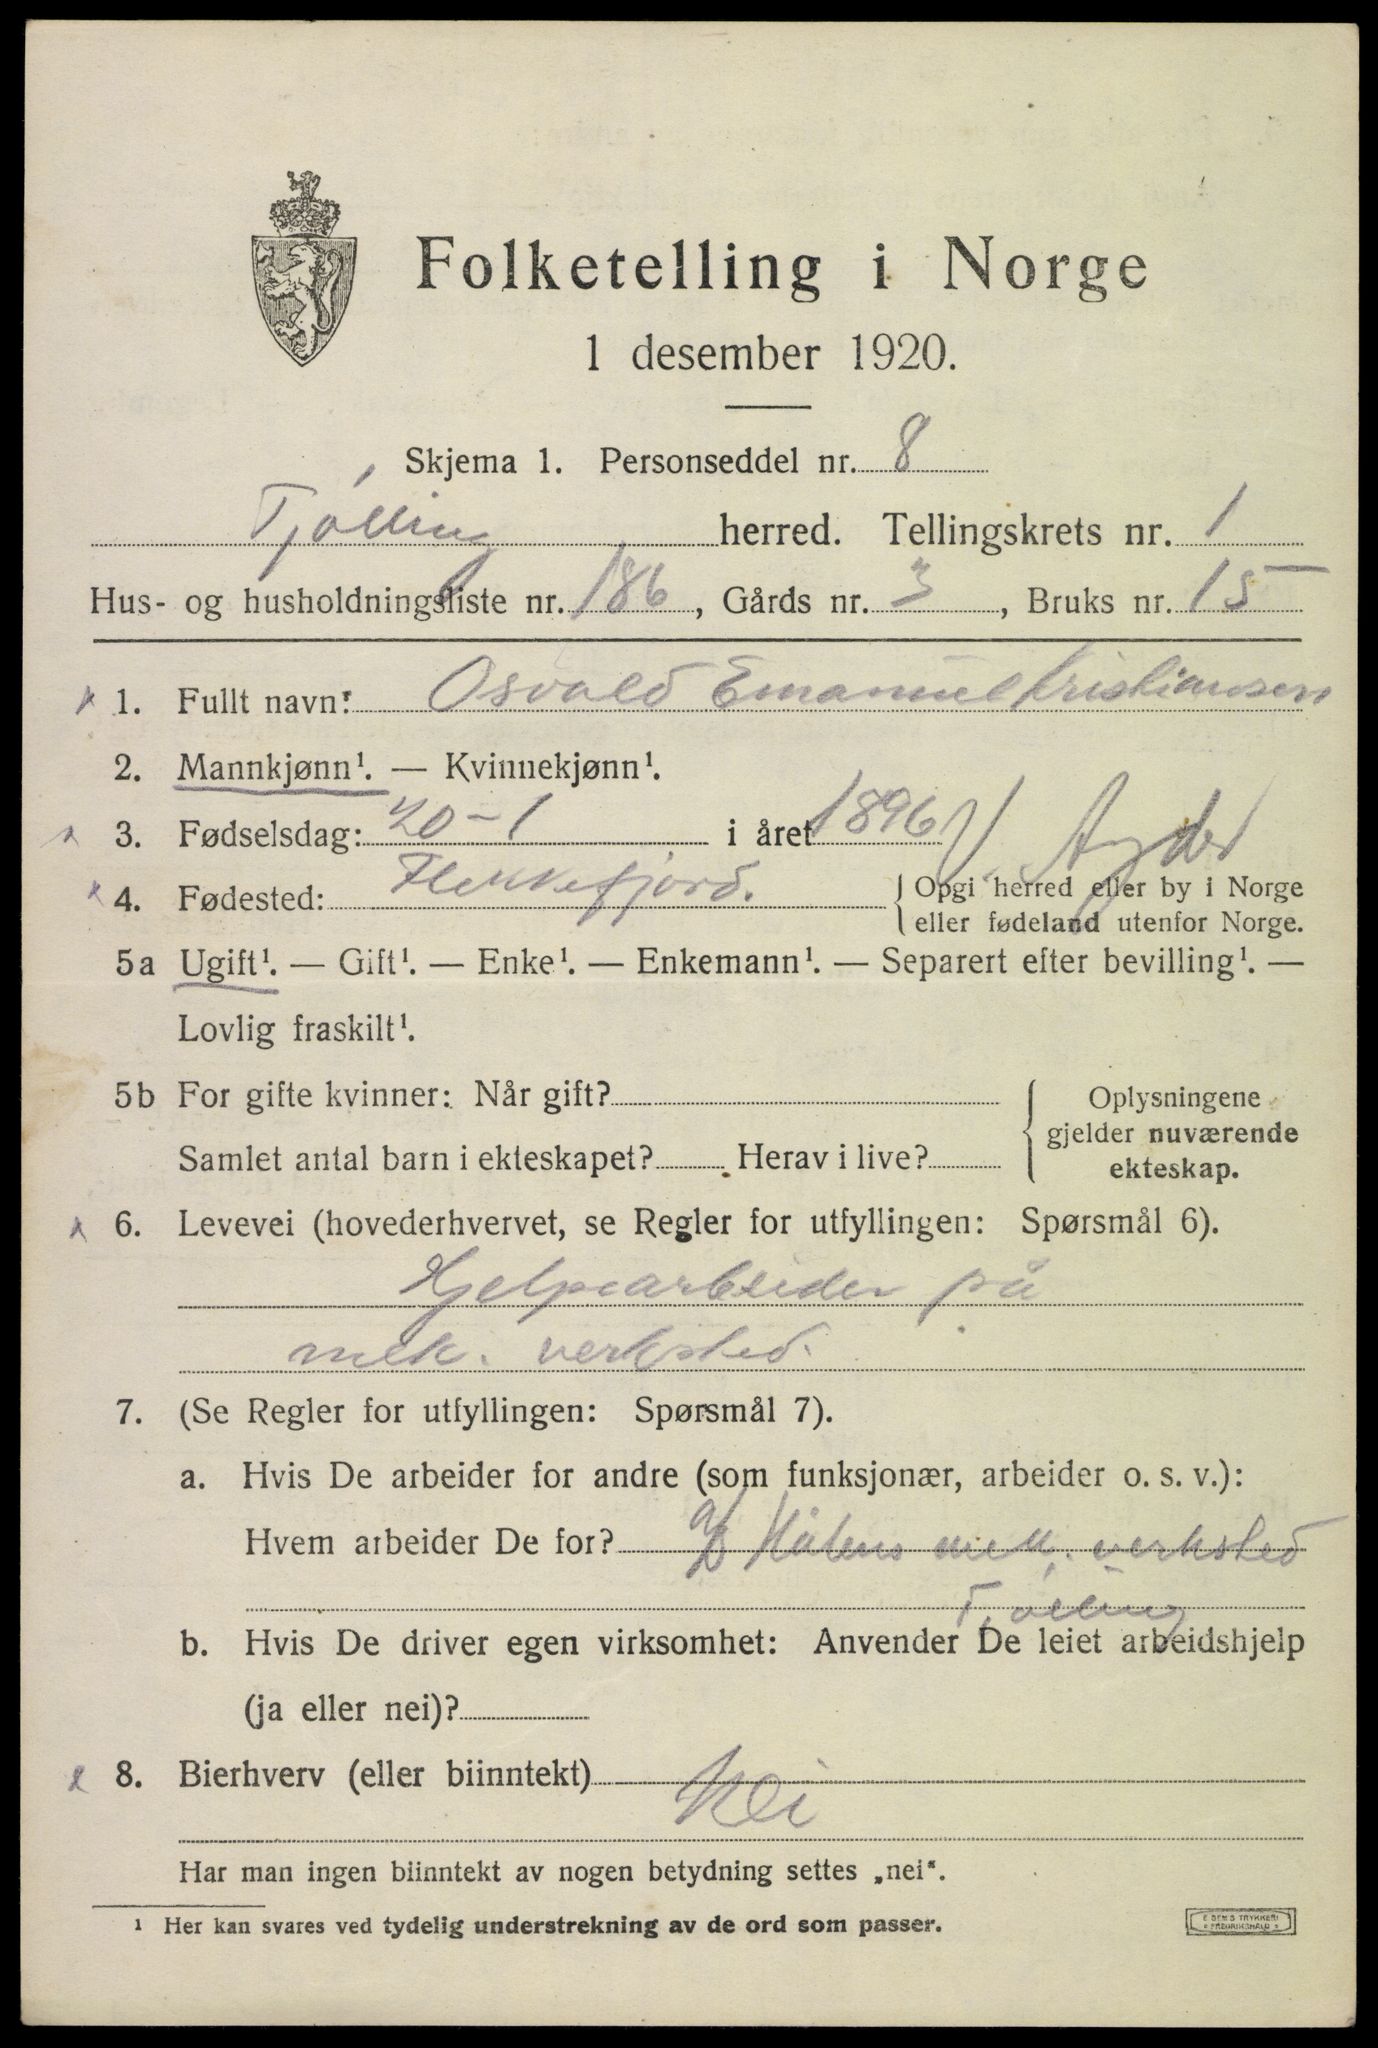 Folketelling i Norge
1 desember 1920.
Skjema 1. Personseddel nr. 8
Tjölling herred. Tellingskrets nr. 1
Hus- og husholdningsliste nr. 186, Gårds nr. 3, Bruks nr. 15
1. Fullt navn: Osvald Emanuel Kristiansen
2. Mannkjønn¹. — Kvinnekjønn¹.
3. Fødselsdag: 20-1 i året 1896 V. Agder
4. Fødested: Flekkefjord. { Opgi herred eller by i Norge
eller fødeland utenfor Norge.
5a Ugift¹. — Gift¹. — Enke¹. — Enkemann¹. — Separert efter bevilling¹. —
Lovlig fraskilt¹.
5b For gifte kvinner: Når gift?
Samlet antal barn i ekteskapet? Herav i live?
{ Oplysningene
gjelder nuværende
ekteskap.
6. Levevei (hovederhvervet, se Regler for utfyllingen: Spørsmål 6).
Hjelpearbeider på
mek. verksted.
7. (Se Regler for utfyllingen: Spørsmål 7).
a. Hvis De arbeider for andre (som funksjonær, arbeider o. s. v.):
Hvem arbeider De for? mek. verksted
Tjölling
b. Hvis De driver egen virksomhet: Anvender De leiet arbeidshjelp
(ja eller nei)?
8. Bierhverv (eller biinntekt) Nei
Har man ingen biinntekt av nogen betydning settes „nei“.
¹ Her kan svares ved tydelig understrekning av de ord som passer.
E SEM'S TRYKKERI
FREDRIKSHALD